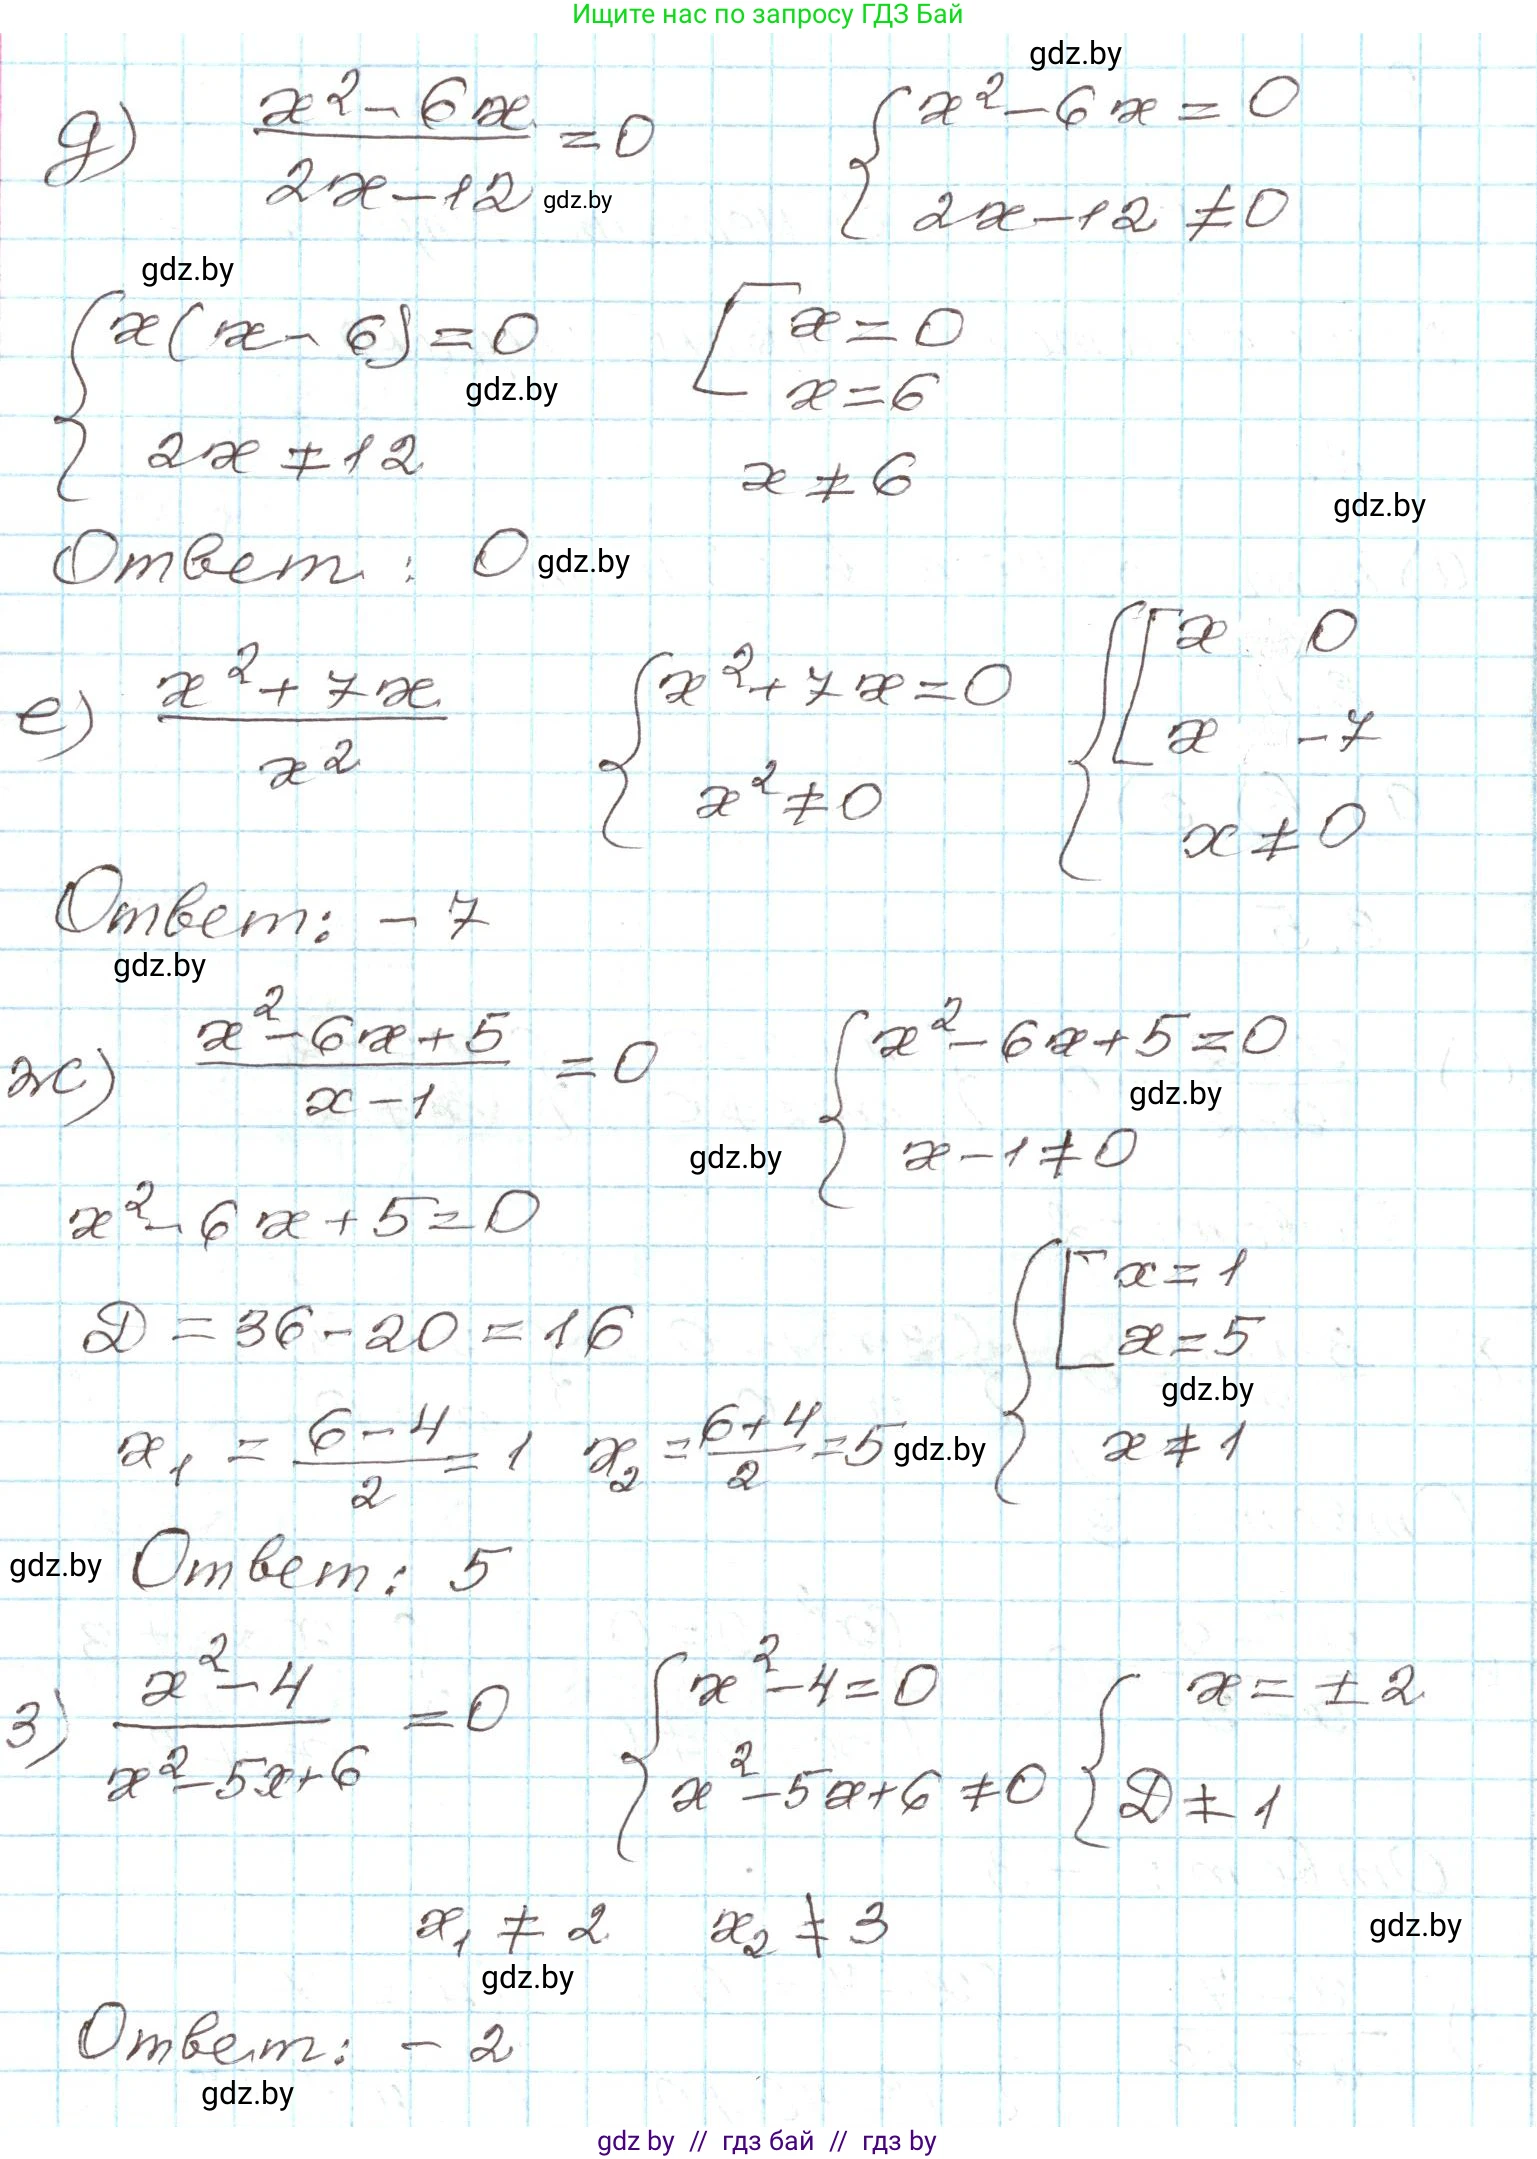 Ищите нас по запросу ГДЗ Бай
gdz.by
д) (x² - 6x)/(2x - 12) = 0 { x² - 6x = 0
2x - 12 ≠ 0
gdz.by
gdz.by
{ x(x - 6) = 0 [ x = 0
gdz.by x = 6
2x ≠ 12 x ≠ 6
gdz.by
Ответ: 0 gdz.by
е) (x² + 7x)/x² { x² + 7x = 0 { [ x 0
x² ≠ 0 x -7
x ≠ 0
Ответ: -7
gdz.by
ж) (x² - 6x + 5)/(x - 1) = 0 { x² - 6x + 5 = 0
gdz.by
gdz.by x - 1 ≠ 0
x² - 6x + 5 = 0
{ [ x = 1
D = 36 - 20 = 16 x = 5
gdz.by
x₁ = (6 - 4)/2 = 1 x₂ = (6 + 4)/2 = 5 gdz.by x ≠ 1
gdz.by Ответ: 5
з) (x² - 4)/(x² - 5x + 6) = 0 { x² - 4 = 0 { x = ± 2
x² - 5x + 6 ≠ 0 D ≠ 1
x₁ ≠ 2 x₂ ≠ 3 gdz.by
gdz.by
Ответ: -2
gdz.by
gdz by // гдз бай // гдз by